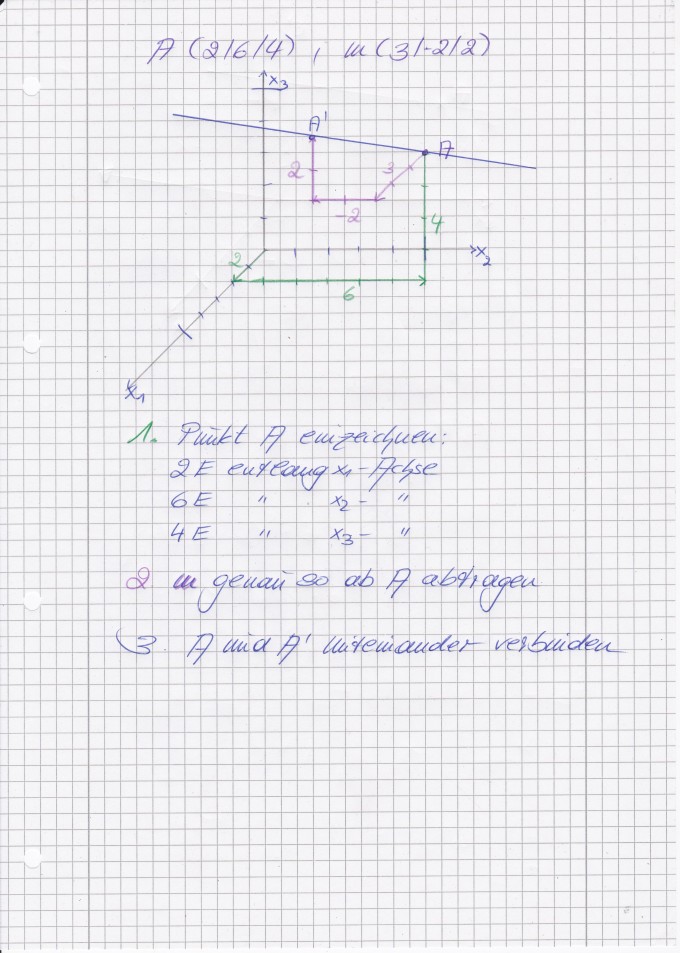 A (2/6/4) , m (3/-2/2)
x3
A'
A
3
2
-2
4
x2
2
6
x1
1. Punkt A einzeichnen:
2E entlang x1-Achse
6E " x2- "
4E " x3- "
2 m genau so ab A abtragen
3. A und A' miteinander verbinden